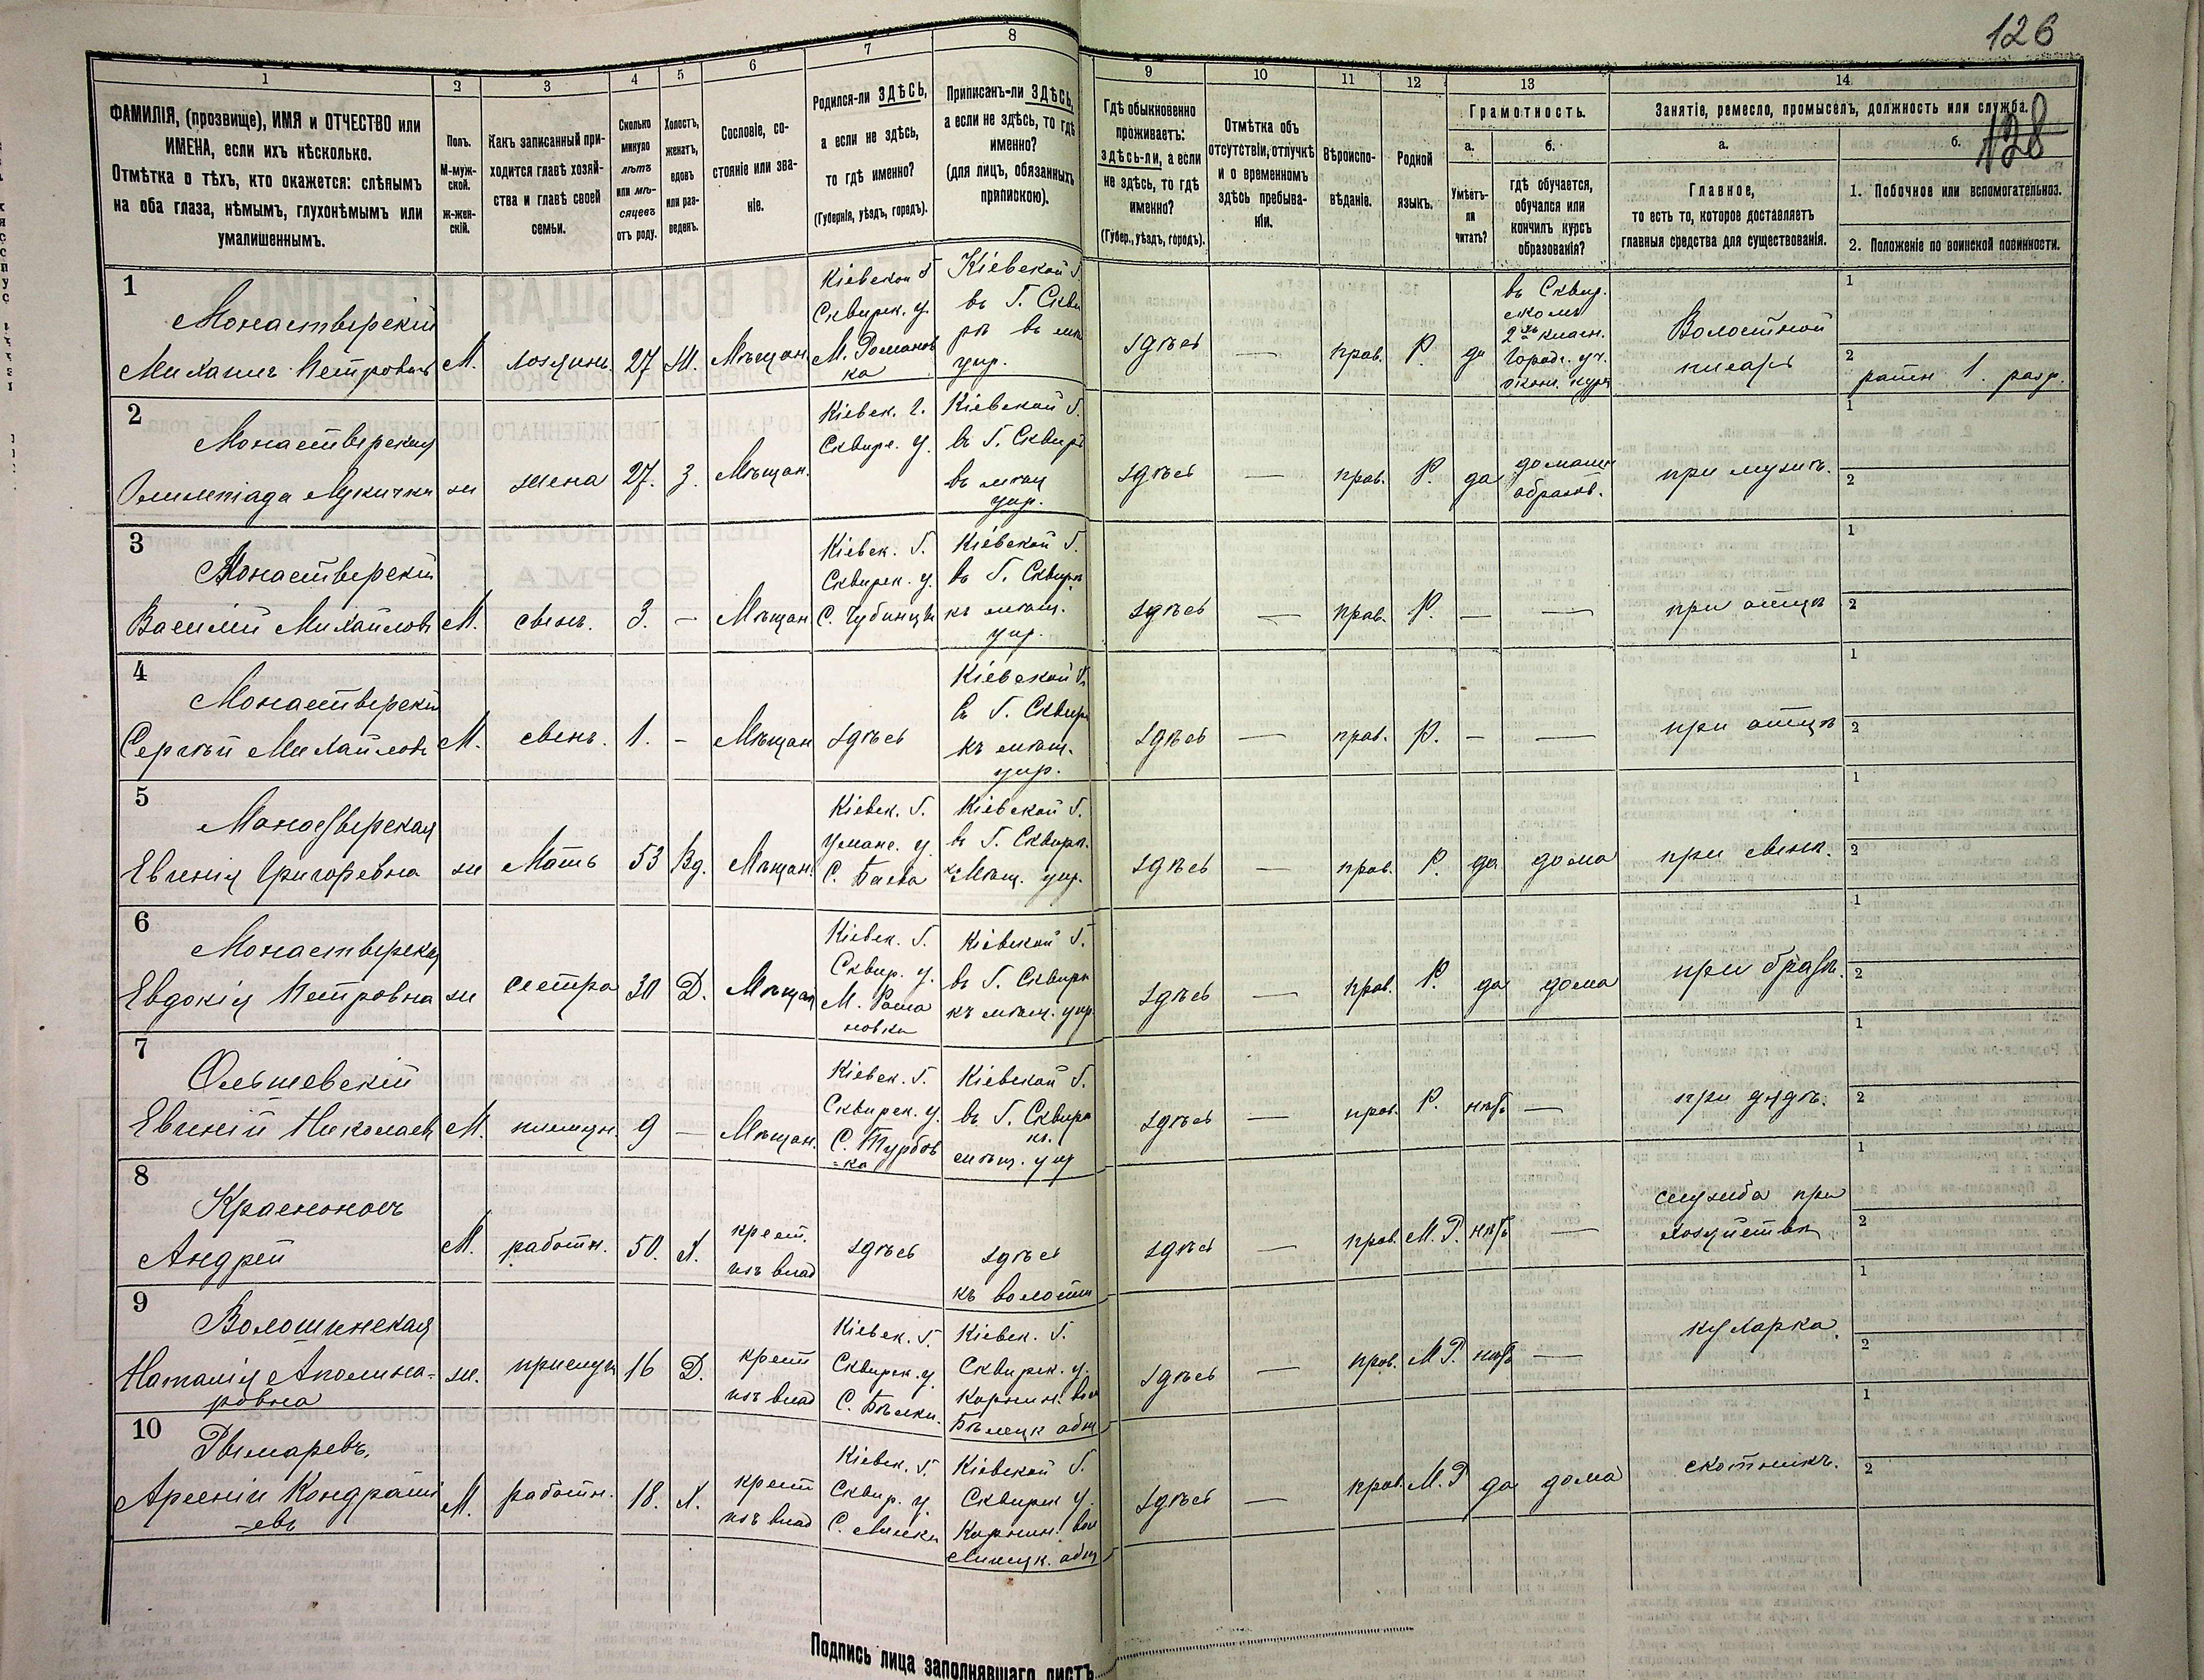 126
128
1
2
3
4
5
6
7
8
9
10
11
12
13
14
ФАМИЛІЯ, (прозвище), ИМЯ и ОТЧЕСТВО или
ИМЕНА, если ихъ нѣсколько.
Отмѣтка о тѣхъ, кто окажется: слѣпымъ
на оба глаза, нѣмымъ, глухонѣмымъ или
умалишеннымъ.
Полъ.
М-муж-
ской.
ж-жен-
скій.
Какъ записанный при-
ходится главѣ хозяй-
ства и главѣ своей
семьи.
Сколько
минуло
лѣтъ
или мѣ-
сяцевъ
отъ роду.
Холостъ,
женатъ,
вдовъ
или раз-
веденъ.
Сословіе, со-
стояніе или зва-
ніе.
Родился-ли ЗДѢСЬ,
а если не здѣсь,
то гдѣ именно?
(Губернія, уѣздъ, городъ).
Приписанъ-ли ЗДѢСЬ,
а если не здѣсь, то гдѣ
именно?
(для лицъ, обязанныхъ
припискою).
Гдѣ обыкновенно
проживаетъ:
здѣсь-ли, а если
не здѣсь, то гдѣ
именно?
(Губер., уѣздъ, городъ).
Отмѣтка объ
отсутствіи, отлучкѣ
и о временномъ
здѣсь пребыва-
ніи.
Вѣроиспо-
вѣданіе.
Родной
языкъ.
Грамотность.
а.
Умѣетъ-
ли
читать?
б.
гдѣ обучается,
обучался или
кончилъ курсъ
образованія?
Занятіе, ремесло, промыселъ, должность или служба.
а.
Главное,
то есть то, которое доставляетъ
главныя средства для существованія.
б.
1. Побочное или вспомогательноз.
2. Положеніе по воинской повинности.
1
Монастырскій
Михаилъ Петровичъ
М.
хозяинъ
27
Ж.
Мѣщан.
Кіевской Г
Сквирск. у.
М. Романов
ка
Кіевской Г.
въ Г. Скви
рѣ въ мѣщ
упр.
здѣсь
—
прав.
Р.
да
въ Сквир.
скомъ
2хъ класн.
Город. уч.
оконч. курс
Волостной
писарь
1
2
ратн 1. разр.
2
Монастырская
Олимпіада Лукична
ж
жена
27.
З.
Мѣщан.
Кіевск. Г.
Сквирс. у.
Кіевской Г.
въ Г. Сквирѣ
въ мѣщ
упр.
здѣсь
—
прав.
Р.
да
домашн
образов.
при мужѣ.
1
2
3
Монастырскій
Василій Михайловъ
М.
сынъ.
3.
—
Мѣщан
Кіевск. Г.
Сквирск. у.
С. Чубинцы
Кіевской Г.
въ Г. Сквирѣ
къ мѣщ.
упр.
здѣсь
—
прав.
Р.
—
—
при отцѣ
1
2
4
Монастырскій
Сергѣй Михайловъ
М.
сынъ.
1.
—
Мѣщан
здѣсь
Кіевской Г.
въ Г. Сквир
къ мѣщ.
упр.
здѣсь
—
прав.
Р.
—
—
при отцѣ
1
2
5
Монастырская
Евгенія Григорьевна
ж
Мать
53
Вд.
Мѣщан.
Кіевск. Г.
Уманс. у.
С. Баева
Кіевской Г.
въ Г. Сквирѣ.
къ Мѣщ. упр.
здѣсь
—
прав.
Р.
да
дома
при сынѣ.
1
2
6
Монастырская
Евдокія Петровна
ж
сестра
30
Д.
Мѣщан
Кіевск. Г.
Сквир. у.
М. Рома
новка
Кіевской Г.
въ Г. Сквирѣ
къ мѣщ. упр.
здѣсь
—
прав.
Р.
да
дома
при братѣ.
1
2
7
Ольшевскій
Евгеній Николаев
М.
племян.
9
—
Мѣщан.
Кіевск. Г.
Сквирск. у.
С. Турбов
=ка
Кіевской Г.
въ Г. Сквирѣ
къ
мѣщ. упр
здѣсь
—
прав.
Р.
нѣтъ
—
при дядѣ.
1
2
8
Красноносъ
Андрей
М.
работн.
50.
Х.
крест.
изъ влад
здѣсь
здѣсь
къ волости
здѣсь
—
прав.
М. Р.
нѣтъ
—
служба при
хозяйствѣ
1
2
9
Волошинская
Наталія Аполина-
ровна
ж.
прислуга
16
Д.
крест
изъ влад
Кіевск. Г.
Сквирск. у.
С. Бѣлки.
Кіевск. Г.
Сквирск. у.
Корнин. вол
Бѣлецк общ
здѣсь
—
прав.
М Р.
нѣтъ
—
кухарка.
1
2
10
Рымаревъ,
Арсеній Кондратi
-евъ
М.
работн.
18.
Х.
крест
изъ влад
Кіевск. Г.
Сквир. у.
С. Липки
Кіевской Г.
Сквирск у.
Корнин. вол
Липецк. общ
здѣсь
—
прав.
М. Р
да
дома
скотникъ.
1
2
Подпись лица заполнявшаго листъ